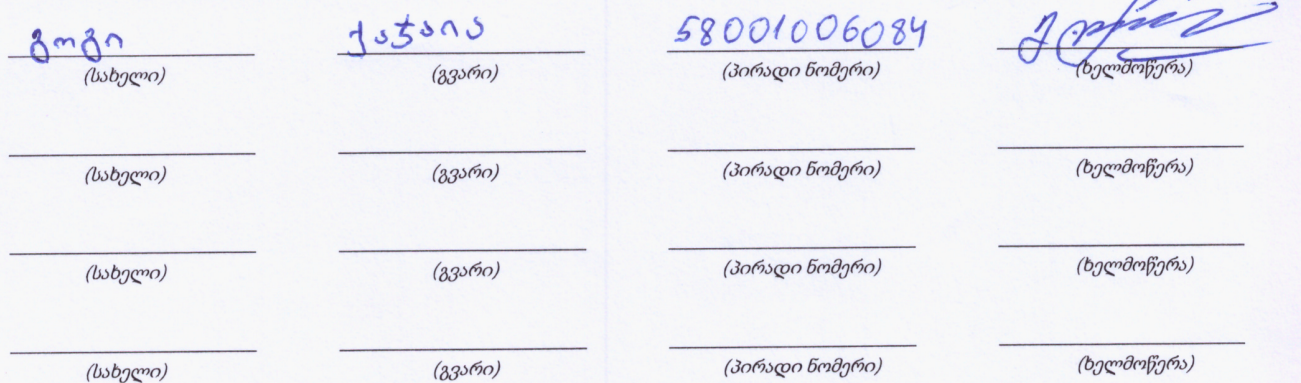 გოგი ქაჯაია 58001006084
(სახელი) (გვარი) (პირადი ნომერი) (ხელმოწერა)
(სახელი) (გვარი) (პირადი ნომერი) (ხელმოწერა)
(სახელი) (გვარი) (პირადი ნომერი) (ხელმოწერა)
(სახელი) (გვარი) (პირადი ნომერი) (ხელმოწერა)